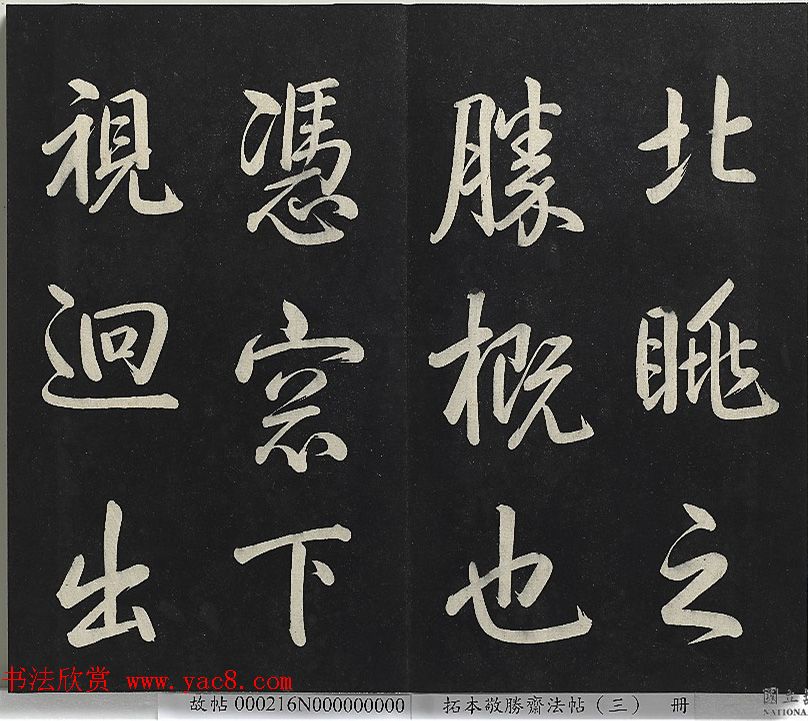 北眺之
勝概也
憑窓下
視迥出
书法欣赏 www.yac8.com
故帖 000216N000000000
拓本敬勝齋法帖（三） 册
國立
NATIONA